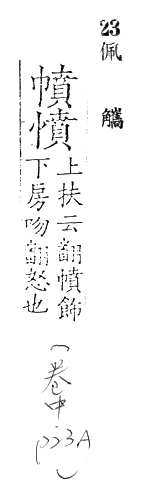 23
佩觿
幩憤
上扶云翻幩飾
下房吻翻怒也
(卷中
p23A)